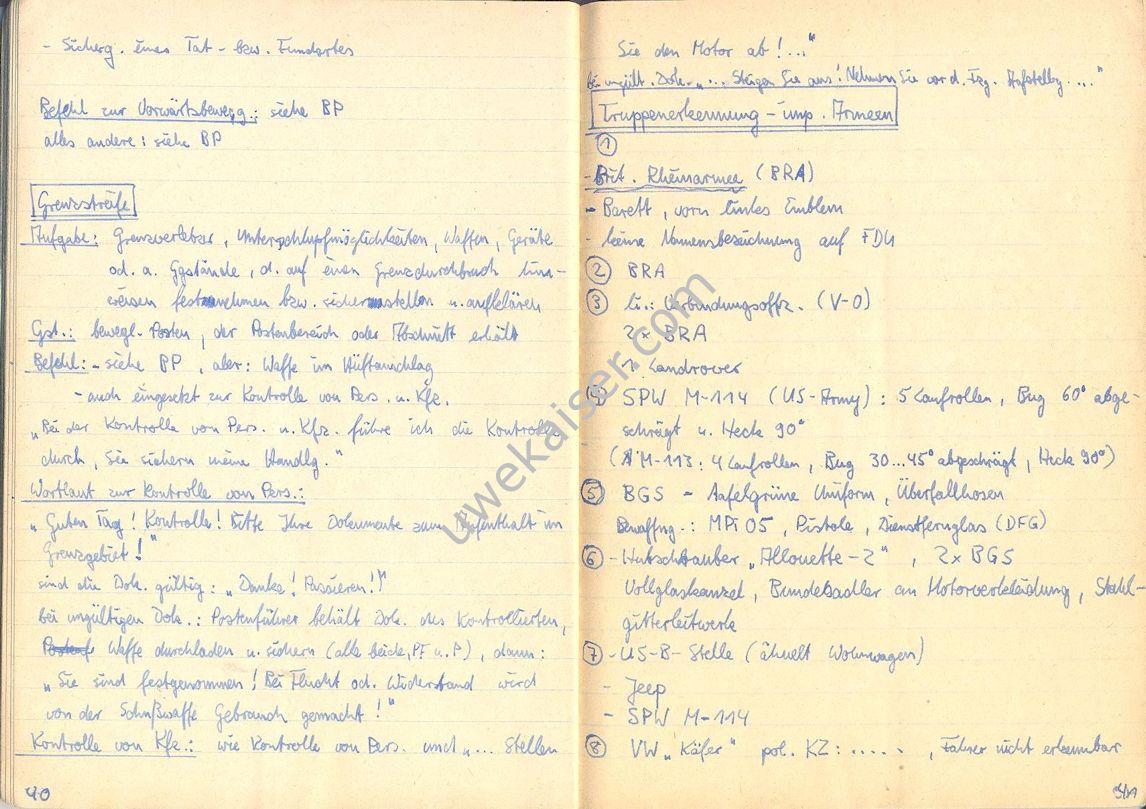 - Sicherg. eines Tat- bzw. Fundortes
Befehl zur Vorwärtsbewegg.: siehe BP
alles andere: siehe BP
Grenzstreife
Aufgabe: Grenzverletzer, Unterschlupfmöglichkeiten, Waffen, Geräte
od. a. Ggstände, d. auf einen Grenzdurchbruch hin-
weisen festnehmen bzw. sicherstellen u. aufklären
Gst.: bewegl. Posten, der Postenbereich oder Abschnitt erhält
Befehl: - siehe BP, aber: Waffe im Hüftanschlag
- auch eingesetzt zur Kontrolle von Pers. u. Kfz.
„Bei der Kontrolle von Pers. u. Kfz. führe ich die Kontrolle
durch, Sie sichern meine Handlg."
Wortlaut zur Kontrolle von Pers.:
„Guten Tag! Kontrolle! Bitte Ihre Dokumente zum Aufenthalt im
Grenzgebiet!"
sind die Dok. gültig: „Danke! Passieren!"
bei ungültigen Dok.: Postenführer behält Dok. des Kontrollierten,
Waffe durchladen u. sichern (alle beide, PF u. P), dann:
„Sie sind festgenommen! Bei Flucht od. Widerstand wird
von der Schußwaffe Gebrauch gemacht!"
Kontrolle von Kfz.: wie Kontrolle von Pers. und „... Stellen
40
Sie den Motor ab!..."
bei ungült. Dok. „... Steigen Sie aus! Nehmen Sie vor d. Fzg. Aufstellg. ..."
Truppenerkennung - imp. Armeen
①
- Brit. Rheinarmee (BRA)
- Barett, vorn linkes Emblem
- keine Namensbezeichnung auf FDU
② BRA
③ li.: Verbindungsoffz. (V-O)
2x BRA
1x Landrover
④ SPW M-114 (US-Army): 5 Laufrollen, Bug 60° abge-
schrägt u. Heck 90°
M-113: 4 Laufrollen, Bug 30...45° abgeschrägt, Heck 90°)
⑤ BGS - tafelgrüne Uniform, Überfallhosen
Bewaffng.: MPi 05, Pistole, Dienstfernglas (DFG)
⑥ - Hubschrauber „Allouette-2", 2x BGS
Vollglaskanzel, Bundesadler an Motorverkleidung, Stahl-
gitterleitwerk
⑦ - US-B-Stelle (ähnelt Wohnwagen)
- Jeep
- SPW M-114
⑧ VW „Käfer" pol. KZ: ....., Fahrer nicht erkennbar
41
uwekaiser.com